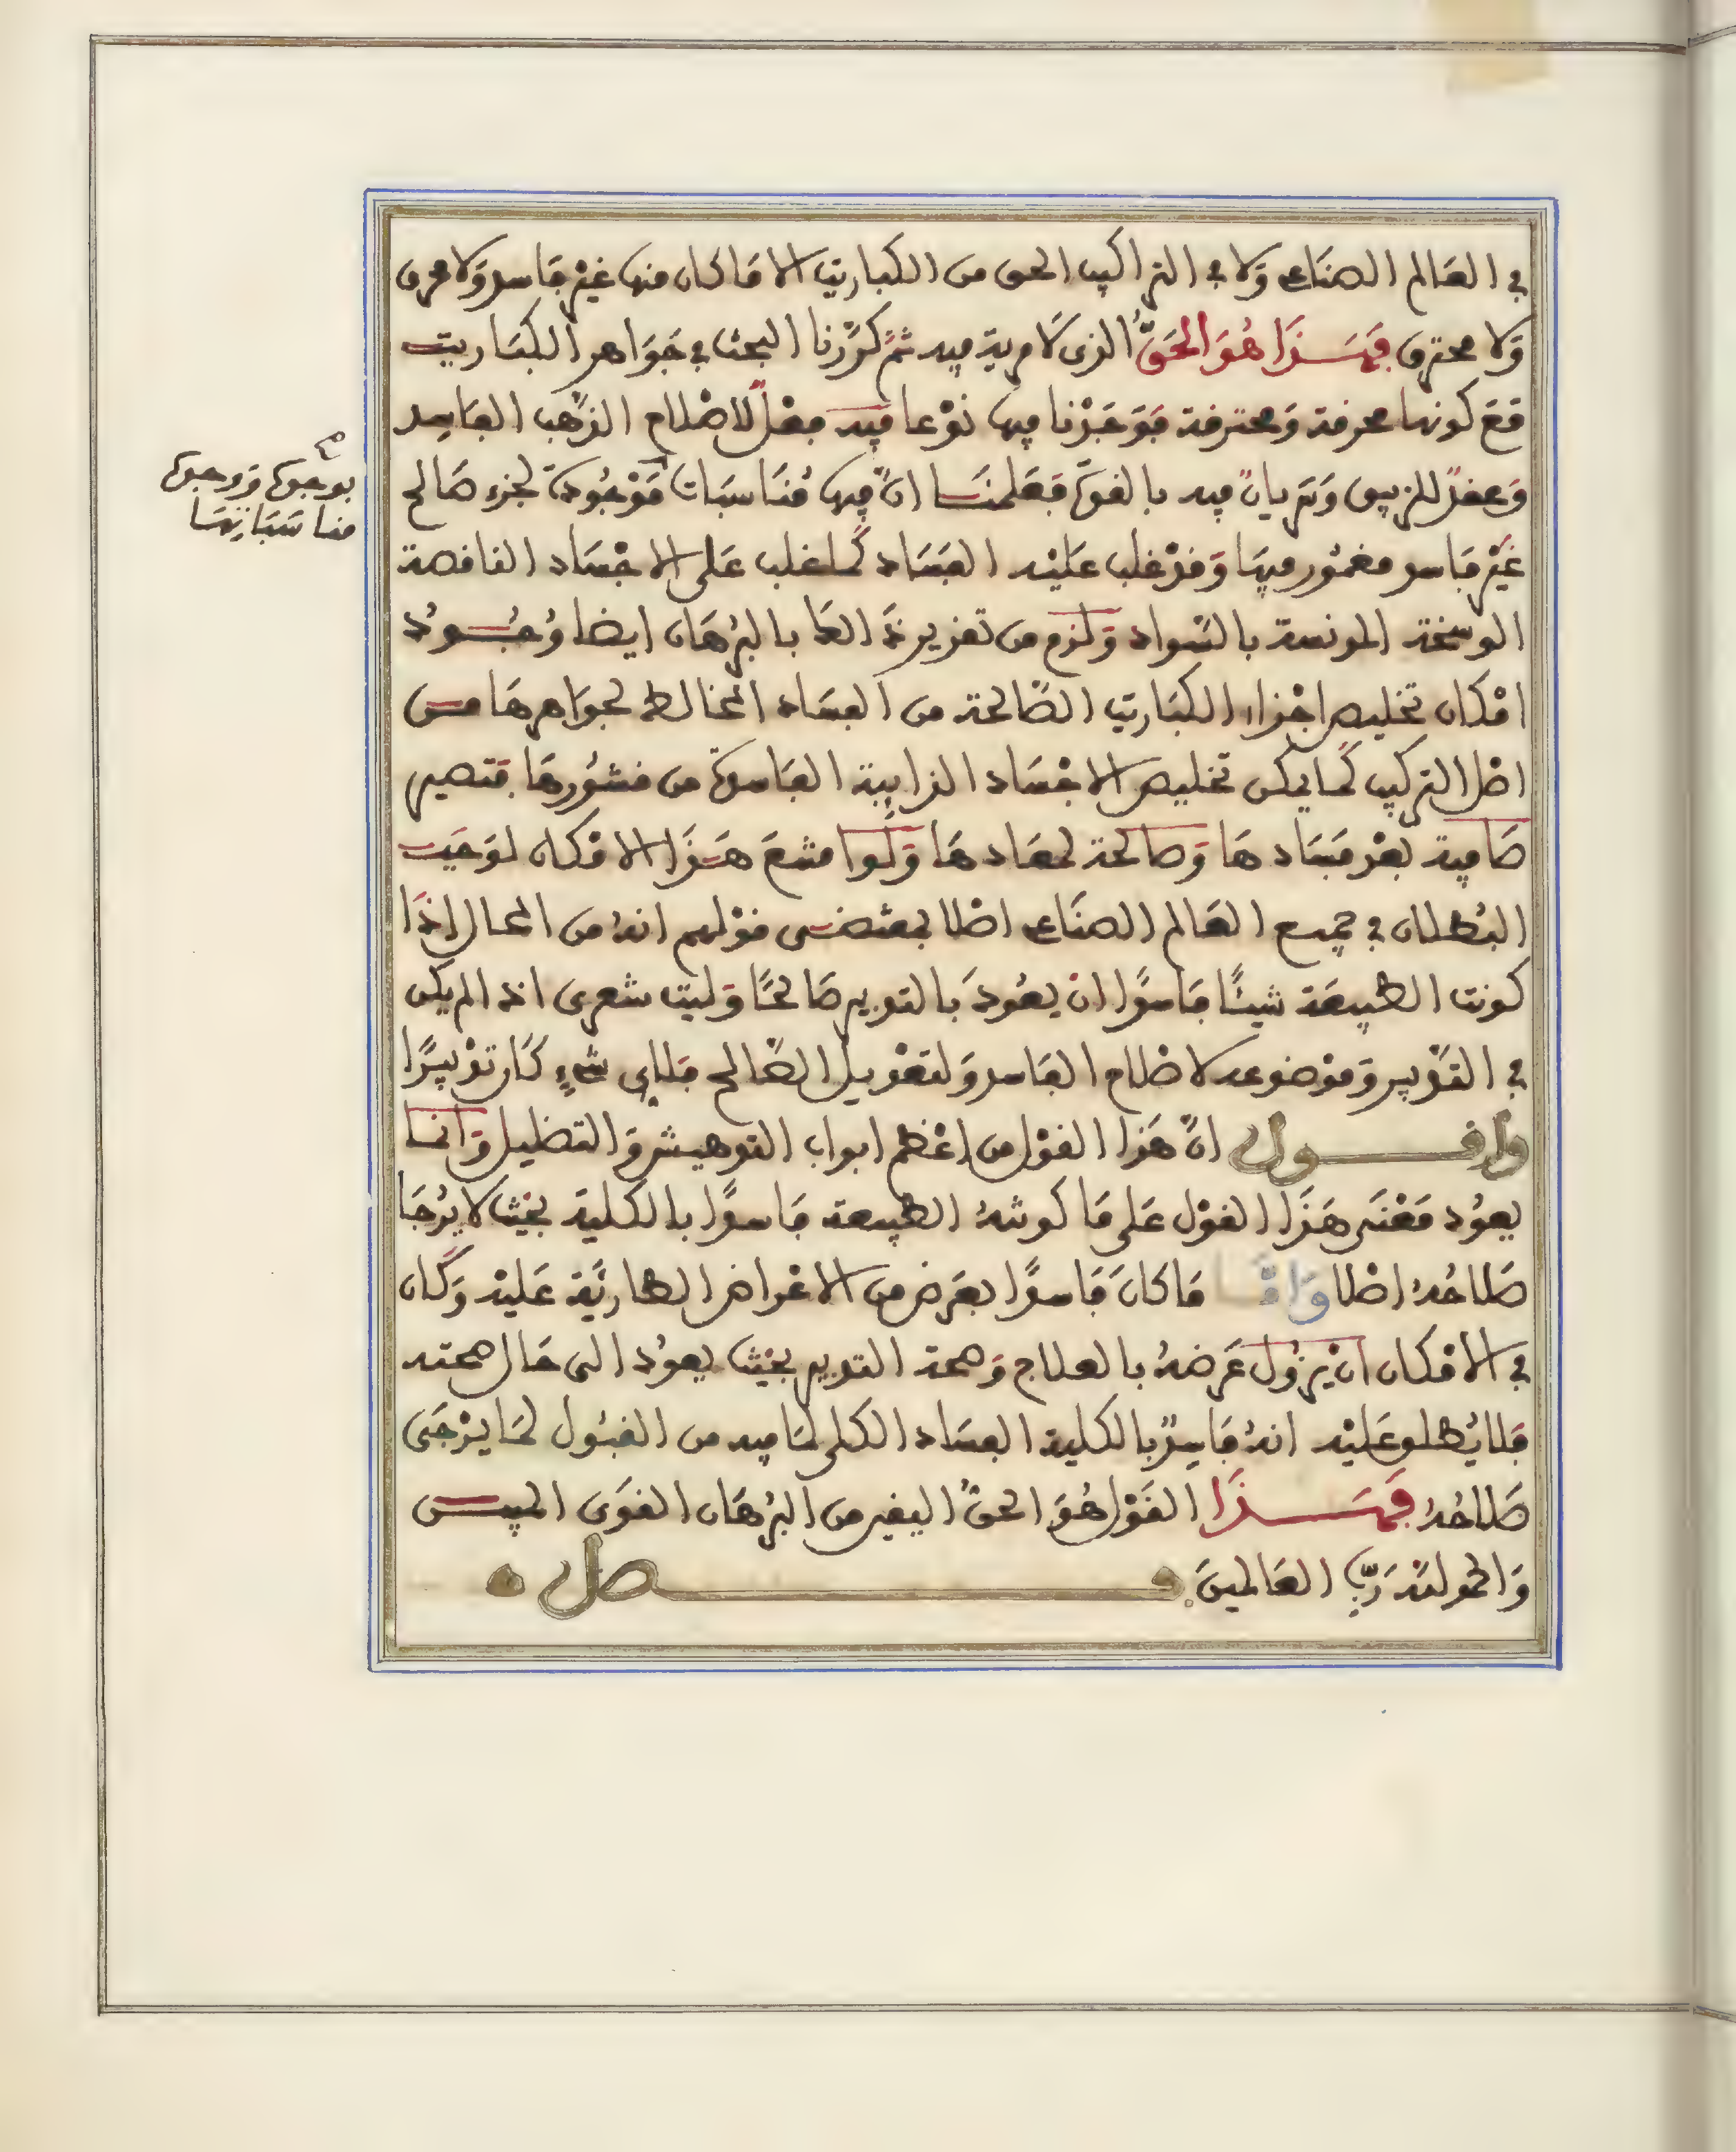 في العالم الصناعي ولا في التراكيب الحق من الكباريت الا ما كان منها غير فاسد ولا محرق
ولا محترق فهذا هو الحق الذي لا مرية فيه ثم كررنا البحث في جواهر الكباريت
مع كونها محرقة ومحترقة فوجدنا فيها نوعا فيه فعل لاصلاح الذهب الفاسد
وعقد للزيبق وترياق فيه بالقوة فعلمنا ان فيها مناسبات موجودة لجزء صالح
غير فاسد مغمور فيها وقد غلب عليه الفساد كما غلب على الاجساد الناقصة
الوسخة المدنسة بالسواد ولزم من تقدير ذا العا بالبرهان ايضا وجود
امكان تخليص اجزاء الكباريت الصالحة من الفساد المخالط لجواهرها من
اصل التركيب كما يمكن تخليص الاجساد الذايبة الفاسدة من قشورها فتصير
صافية بعد فسادها وصالحة لمعادها ولو امتنع هذا الامكان لوجب
البطلان في جميع العالم الصناعي اصلا بمقتضى قولهم انه من المحال اذا
كونت الطبيعة شيئا فاسدا ان يعود بالتدبير صالحا وليت شعري اذا لم يكن
في التدبير وموضوعه لاصلاح الفاسد ولتعديل الصالح فلاي شيء كان تدبيرا
واقول ان هذا القول من اعظم ابواب التوهيش والتضليل وانما
يعود معنى هذا القول على ما كونته الطبيعة فاسدا بالكلية بحيث لا يرجا
صلاحه اصلا واما ما كان فاسدا بعرض من الاعراض الطارية عليه وكان
في الامكان ان يزول عرضه بالعلاج وصحة التدبير بحيث يعود الى حال صحته
فلا يطلق عليه انه فاسد بالكلية الفساد الكلي لما فيه من القبول لما يرجى
صلاحه فهذا القول هو الحق اليقين من البرهان القوي المبين
والحمد لله رب العالمين فصل
بوجوه ووجوه
مناسباتها